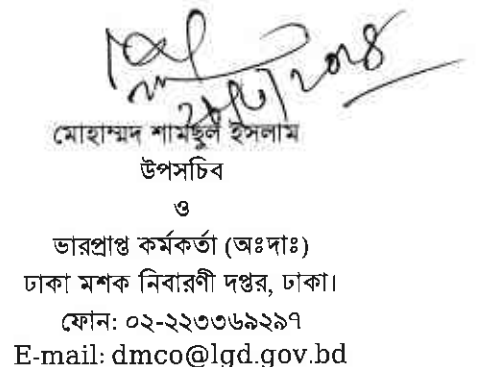 মোহাম্মদ শামছুল ইসলাম
উপসচিব
ও
ভারপ্রাপ্ত কর্মকর্তা (অঃদাঃ)
ঢাকা মশক নিবারণী দপ্তর, ঢাকা।
ফোন: ০২-২২৩৩৬৯২৯৭
E-mail: dmco@lgd.gov.bd